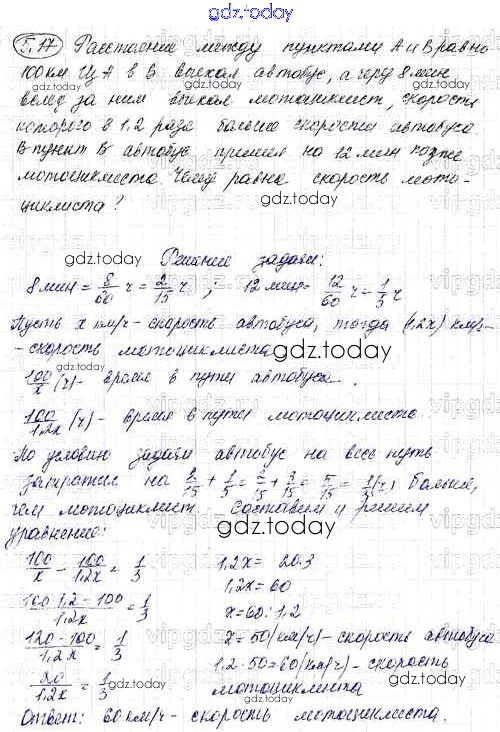 gdz.today
5.17 Расстояние между пунктами А и В равно
100 км. Из А в В выехал автобус, а через 8 мин
gdz.today
вслед за ним выехал мотоциклист, скорость
которого в 1,2 раза больше скорости автобуса.
В пункт В автобус пришел на 12 мин позже
мотоциклиста. Чему равна скорость мото-
циклиста?
gdz.today
Решение задачи:
8 мин = 8/60 ч = 2/15 ч ; 12 мин = 12/60 ч = 1/5 ч
Пусть x км/ч - скорость автобуса, тогда (1,2x) км/ч-
- скорость мотоциклиста
gdz.today
100/x (ч) - время в пути автобуса.
100/1,2x (ч) - время в пути мотоциклиста.
По условию задачи автобус на весь путь
затратил на 2/15 + 1/5 = 2/15 + 3/15 = 5/15 = 1/3 (ч) больше,
чем мотоциклист. Составим и решим
gdz.today
уравнение:
100/x - 100/1,2x = 1/3
100·1,2 - 100/1,2x = 1/3
120 - 100/1,2x = 1/3
20/1,2x = 1/3
1,2x = 20·3
1,2x = 60
x = 60 : 1,2
x = 50 (км/ч) - скорость автобуса
1,2·50 = 60 (км/ч) - скорость
мотоциклиста
gdz.today
Ответ: 60 км/ч - скорость мотоциклиста.